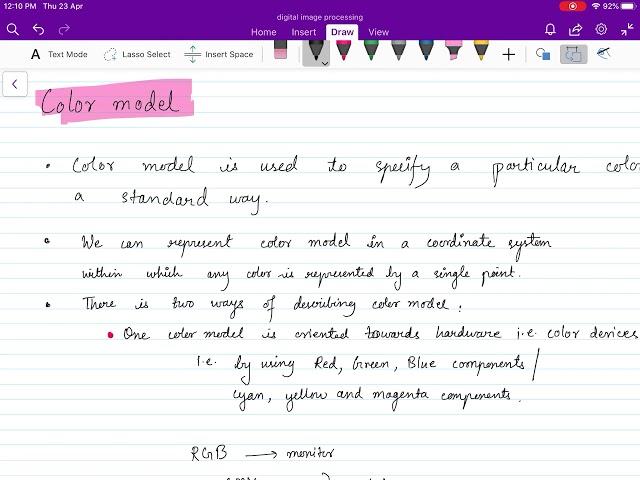 12:10 PM Thu 23 Apr
92%
digital image processing
Home Insert Draw View
A Text Mode Lasso Select Insert Space
Color model
• Color model is used to specify a particular colo
a standard way.
• We can represent color model in a coordinate system
within which any color is represented by a single point.
• There is two ways of describing color model:
• One color model is oriented towards hardware i.e. color devices
i.e. by using Red, Green, Blue components /
cyan, yellow and magenta components.
RGB → monitor